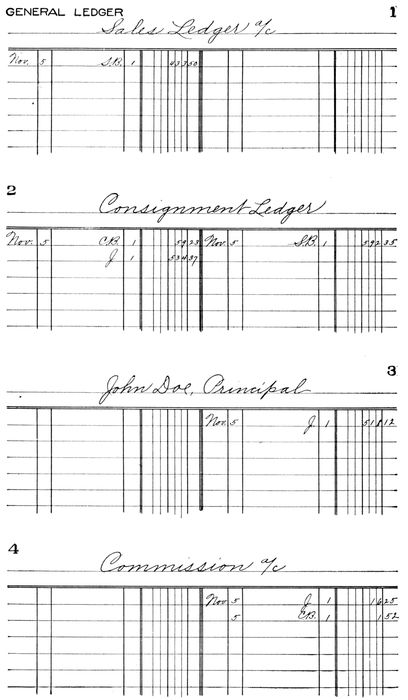 GENERAL LEDGER 1
Sales Ledger a/c
Nov. 5 S.B. 1 43350
2
Consignment Ledger
Nov. 5 C.B. 1 5923 Nov. 5 S.B. 1 59235
J. 1 53437
3
John Doe, Principal
Nov. 5 J. 1 51812
4
Commission a/c
Nov 5 J. 1 1625
5 C.B. 1 152